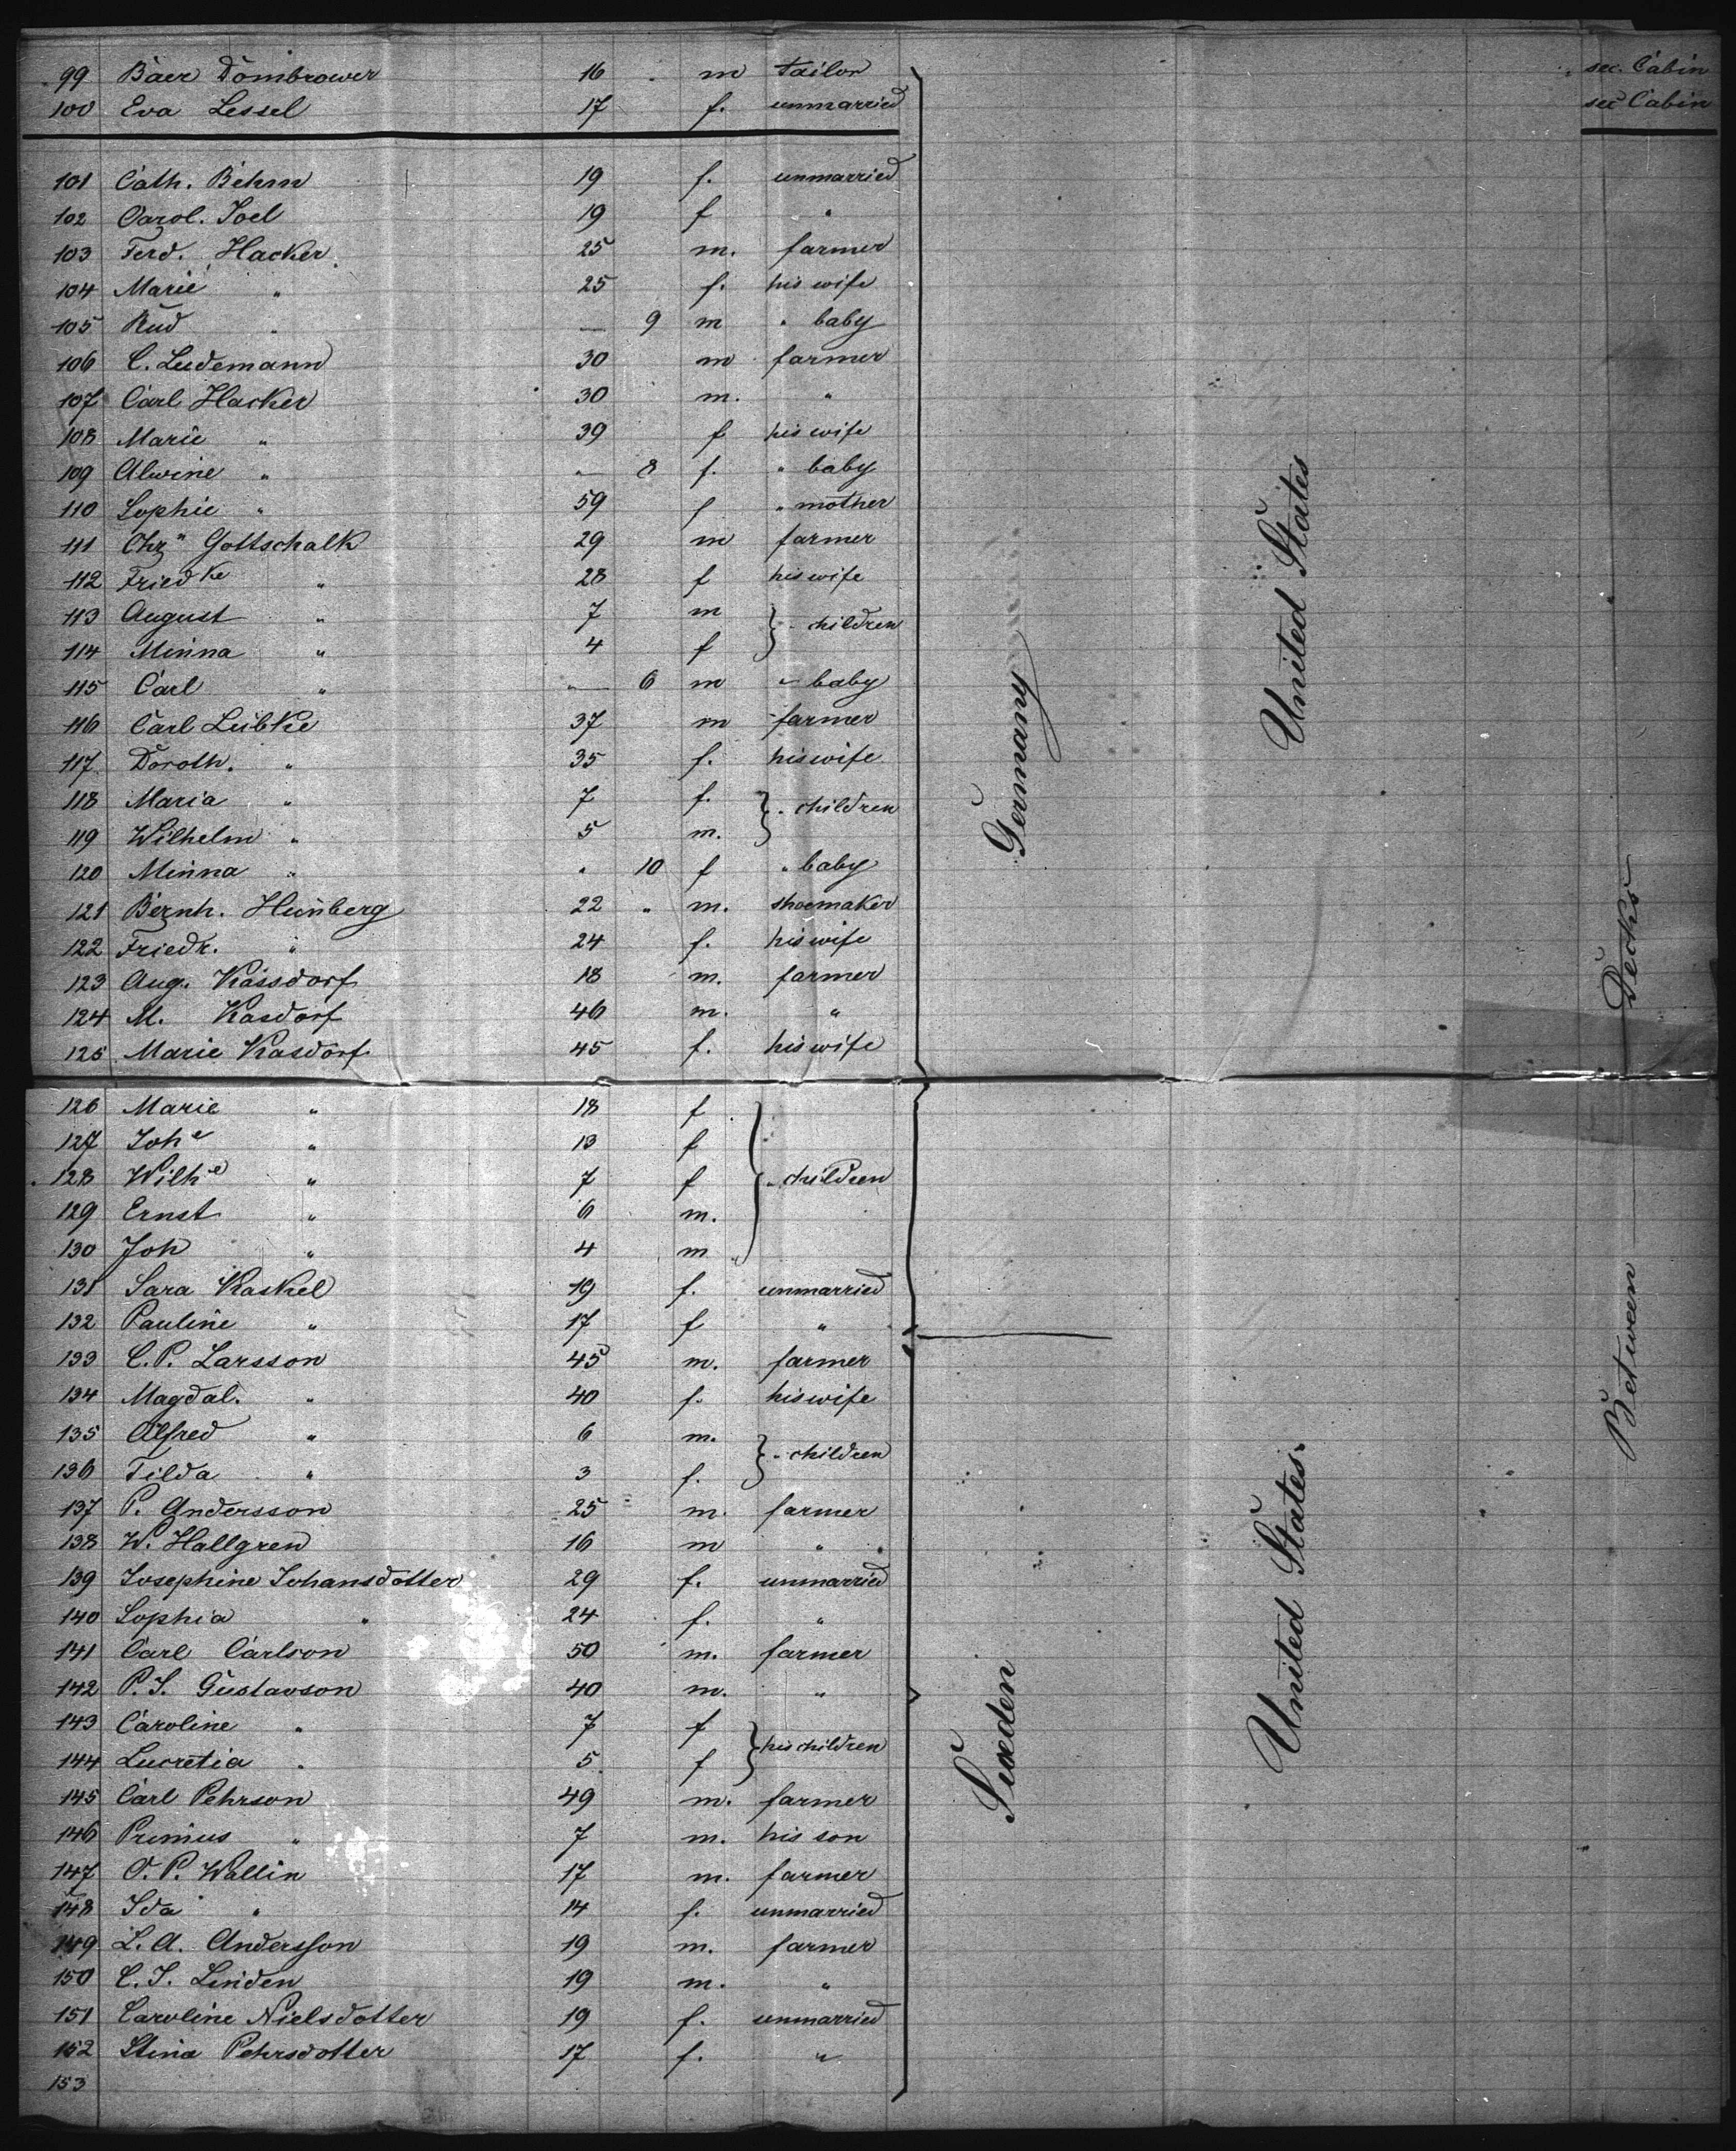 99 Baer Dombrower 16 m tailor sec. Cabin
100 Eva Lessel 17 f. unmarried sec Cabin
101 Cath. Behm 19 f. unmarried
102 Carol. Joel 19 f "
103 Ferd. Hacker 25 m. farmer
104 Marie " 25 f. his wife
105 Rud " — 9 m " baby
106 C. Ludemann 30 m farmer
107 Carl Hacker 30 m. "
108 Marie " 39 f his wife
109 Alwine " — 8 f. " baby
110 Sophie " 59 f " mother
111 Chr" Gottschalk 29 m farmer
112 Friedke " 28 f his wife
113 August " 7 m
} " children
114 Minna " 4 f
115 Carl " — 6 m " baby
116 Carl Lübke 37 m farmer
117 Doroth. " 35 f. his wife
118 Maria " 7 f.
} " children
119 Wilhelm " 5 m.
120 Minna " " 10 f " baby
121 Bernh. Hünberg 22 " m. shoemaker
122 Friedr. " 24 f. his wife
123 Aug. Kassdorf 18 m. farmer
124 M. Kasdorf 46 m. "
125 Marie Kasdorf 45 f. his wife
126 Marie " 18 f
127 Johe " 13 f
128 Wilhe " 7 f } " children
129 Ernst " 6 m.
130 Joh " 4 m
131 Sara Kaskel 19 f. unmarried
132 Pauline " 17 f "
Germany
United States
133 C. P. Larsson 45 m. farmer
134 Magdal. " 40 f. his wife
135 Alfred " 6 m.
} " children
136 Tilda " 3 f.
137 P. Andersson 25 m. farmer
138 W. Hallgren 16 m "
139 Josephine Johansdotter 29 f. unmarried
140 Sophia " 24 f. "
141 Carl Carlson 50 m. farmer
142 P. S. Gustavson 40 m. "
143 Caroline " 7 f
} his children
144 Lucretia " 5 f
145 Carl Pehrson 49 m. farmer
146 Primus " 7 m. his son
147 O. P. Wallin 17 m. farmer
148 Ida " 14 f. unmarried
149 L. A. Andersson 19 m. farmer
150 C. J. Linden 19 m. "
151 Caroline Nielsdotter 19 f. unmarried
152 Stina Pehrsdotter 17 f. "
153
Sweden
United States
Between Decks